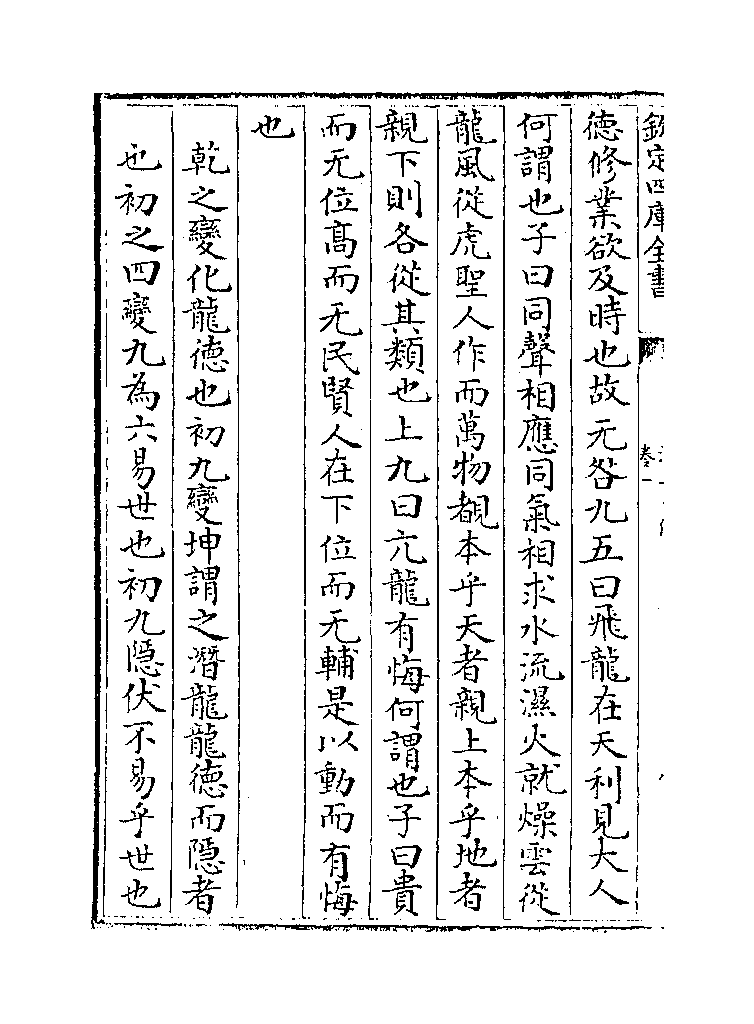 欽定四庫全書
卷一
德修業欲及時也故无咎九五曰飛龍在天利見大人
何謂也子曰同聲相應同氣相求水流濕火就燥雲從
龍風從虎聖人作而萬物覩本乎天者親上本乎地者
親下則各從其類也上九曰亢龍有悔何謂也子曰貴
而无位髙而无民賢人在下位而无輔是以動而有悔
也
乾之變化龍德也初九變坤謂之潛龍龍德而隱者
也初之四變九為六易世也初九隱伏不易乎世也